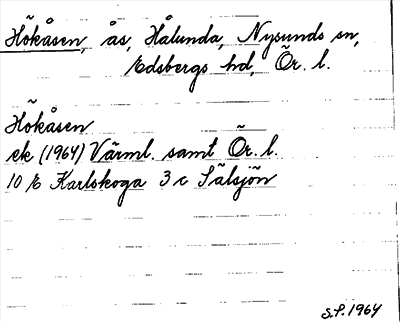 Hökåsen, ås, Hålunda, Nysunds sn,
Edsbergs hd, Ör. l.
Hökåsen
ek (1964) Värml. samt Ör. l.
10 E Karlskoga 3 c Sälsjön
S.P. 1964